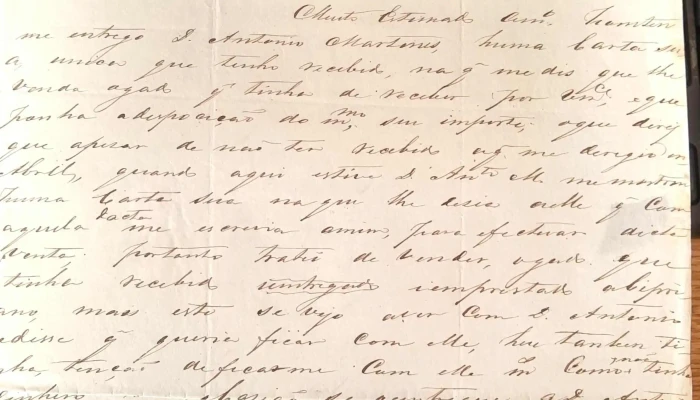 Muito Estimado Am.º Tambem
me entrego D. Antonio Martines, huma Carta sua
a unica que tenho recebido, na q̃ me dis que lhe
venda ogado q̃ tinha de receber por Vm.ce, e que
ponha adesposição do m.mo seu importe; oque
que apezar de não ter recebido
Abril, quando aqui estive D. Ant.º M. me mostrou
huma Carta sua na que lhe desia aelle q̃ Com
aquela dacta me escrevia amim, para efectuar dicta
venta: portanto tratei de vender, ogado que
tinha recebido iemprestado
ano, mas este se vejo aver Com D. Antonio
edisse q̃ queria ficar Com elle, heu tambem ti
nha tencão deficarme Com elle Como não tinha